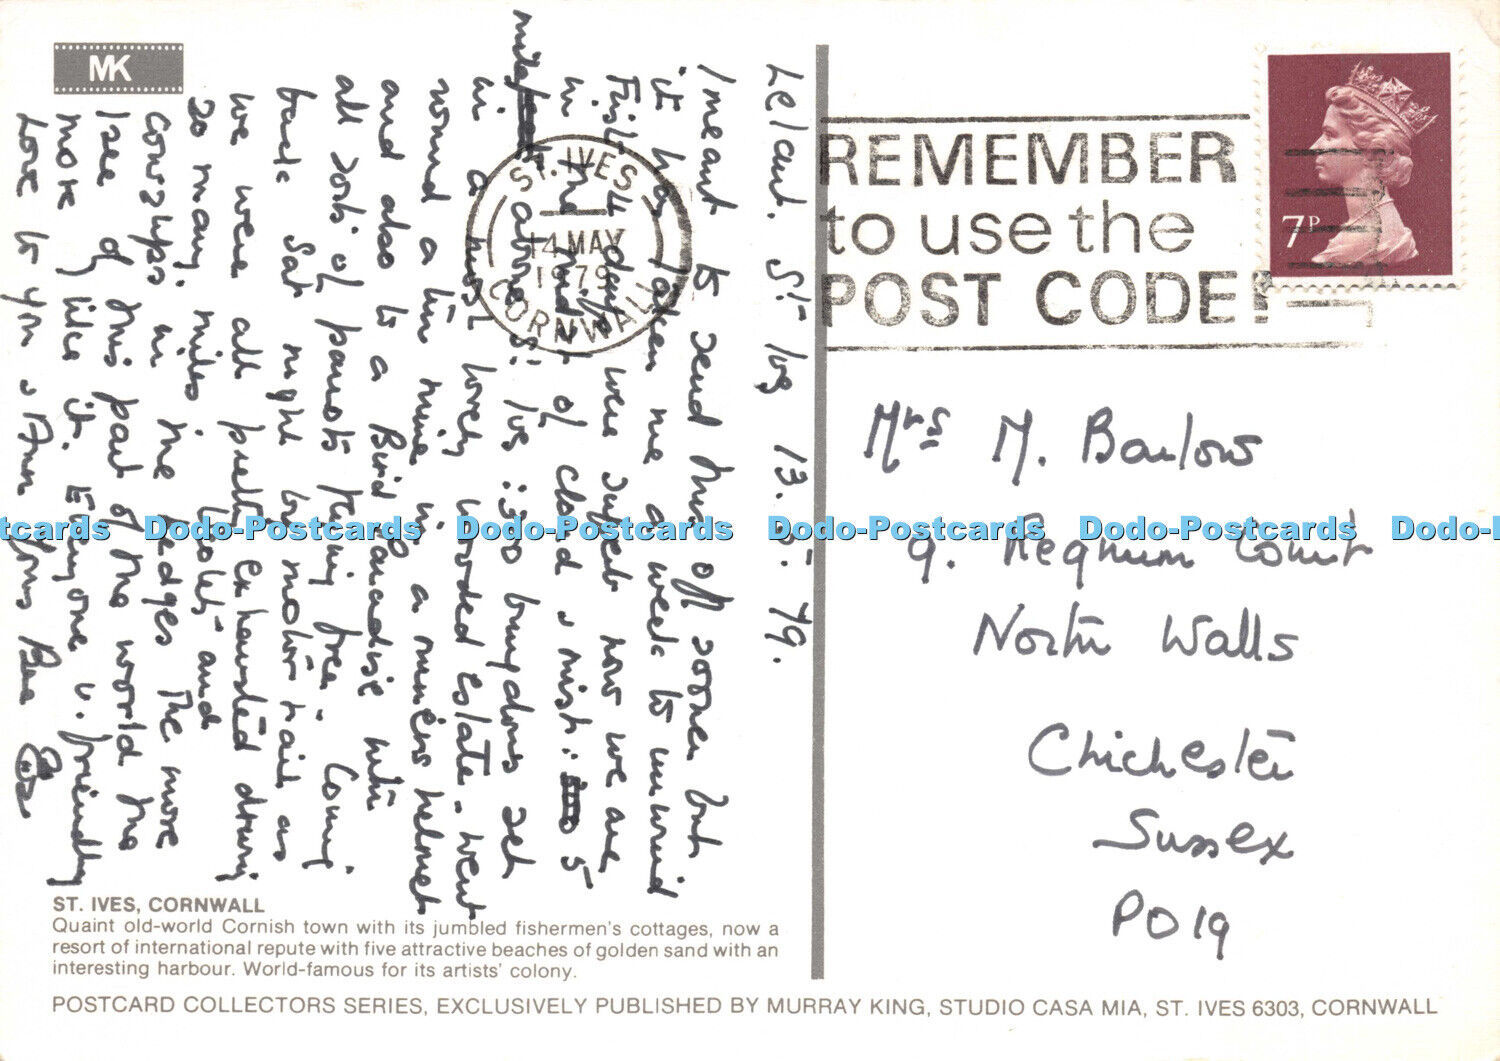 MK
Lelant. St Ives 13.5.79.
I meant to send this off sooner but
it has taken me a week to unwind
First 4 days were superb now we are
in the midst of cloud & mist. 5
miles above St. Ives: 150 bungalows set
in a most lovely wooded estate. Went
round a tin mine in a miners helmet
and also to a Bird Paradise with
all sorts of parrots flying free. Coming
back Sat night by motor rail as
we were all pretty exhausted driving
so many miles. and
cowslips in the hedges the more
I see of this part of the world the
more I like it. Everyone v. friendly
Love to you & Ann Yrs Bee
ST. IVES
14 MAY
1979
CORNWALL
REMEMBER
to use the
POST CODE!
7P
Mrs M. Barlow
9. Regnum Court
North Walls
Chichester
Sussex
PO19
tcards Dodo-Postcards Dodo-Postcards Dodo-Postcards Dodo-Postcards Dodo-P
ST. IVES, CORNWALL
Quaint old-world Cornish town with its jumbled fishermen's cottages, now a
resort of international repute with five attractive beaches of golden sand with an
interesting harbour. World-famous for its artists' colony.
POSTCARD COLLECTORS SERIES, EXCLUSIVELY PUBLISHED BY MURRAY KING, STUDIO CASA MIA, ST. IVES 6303, CORNWALL